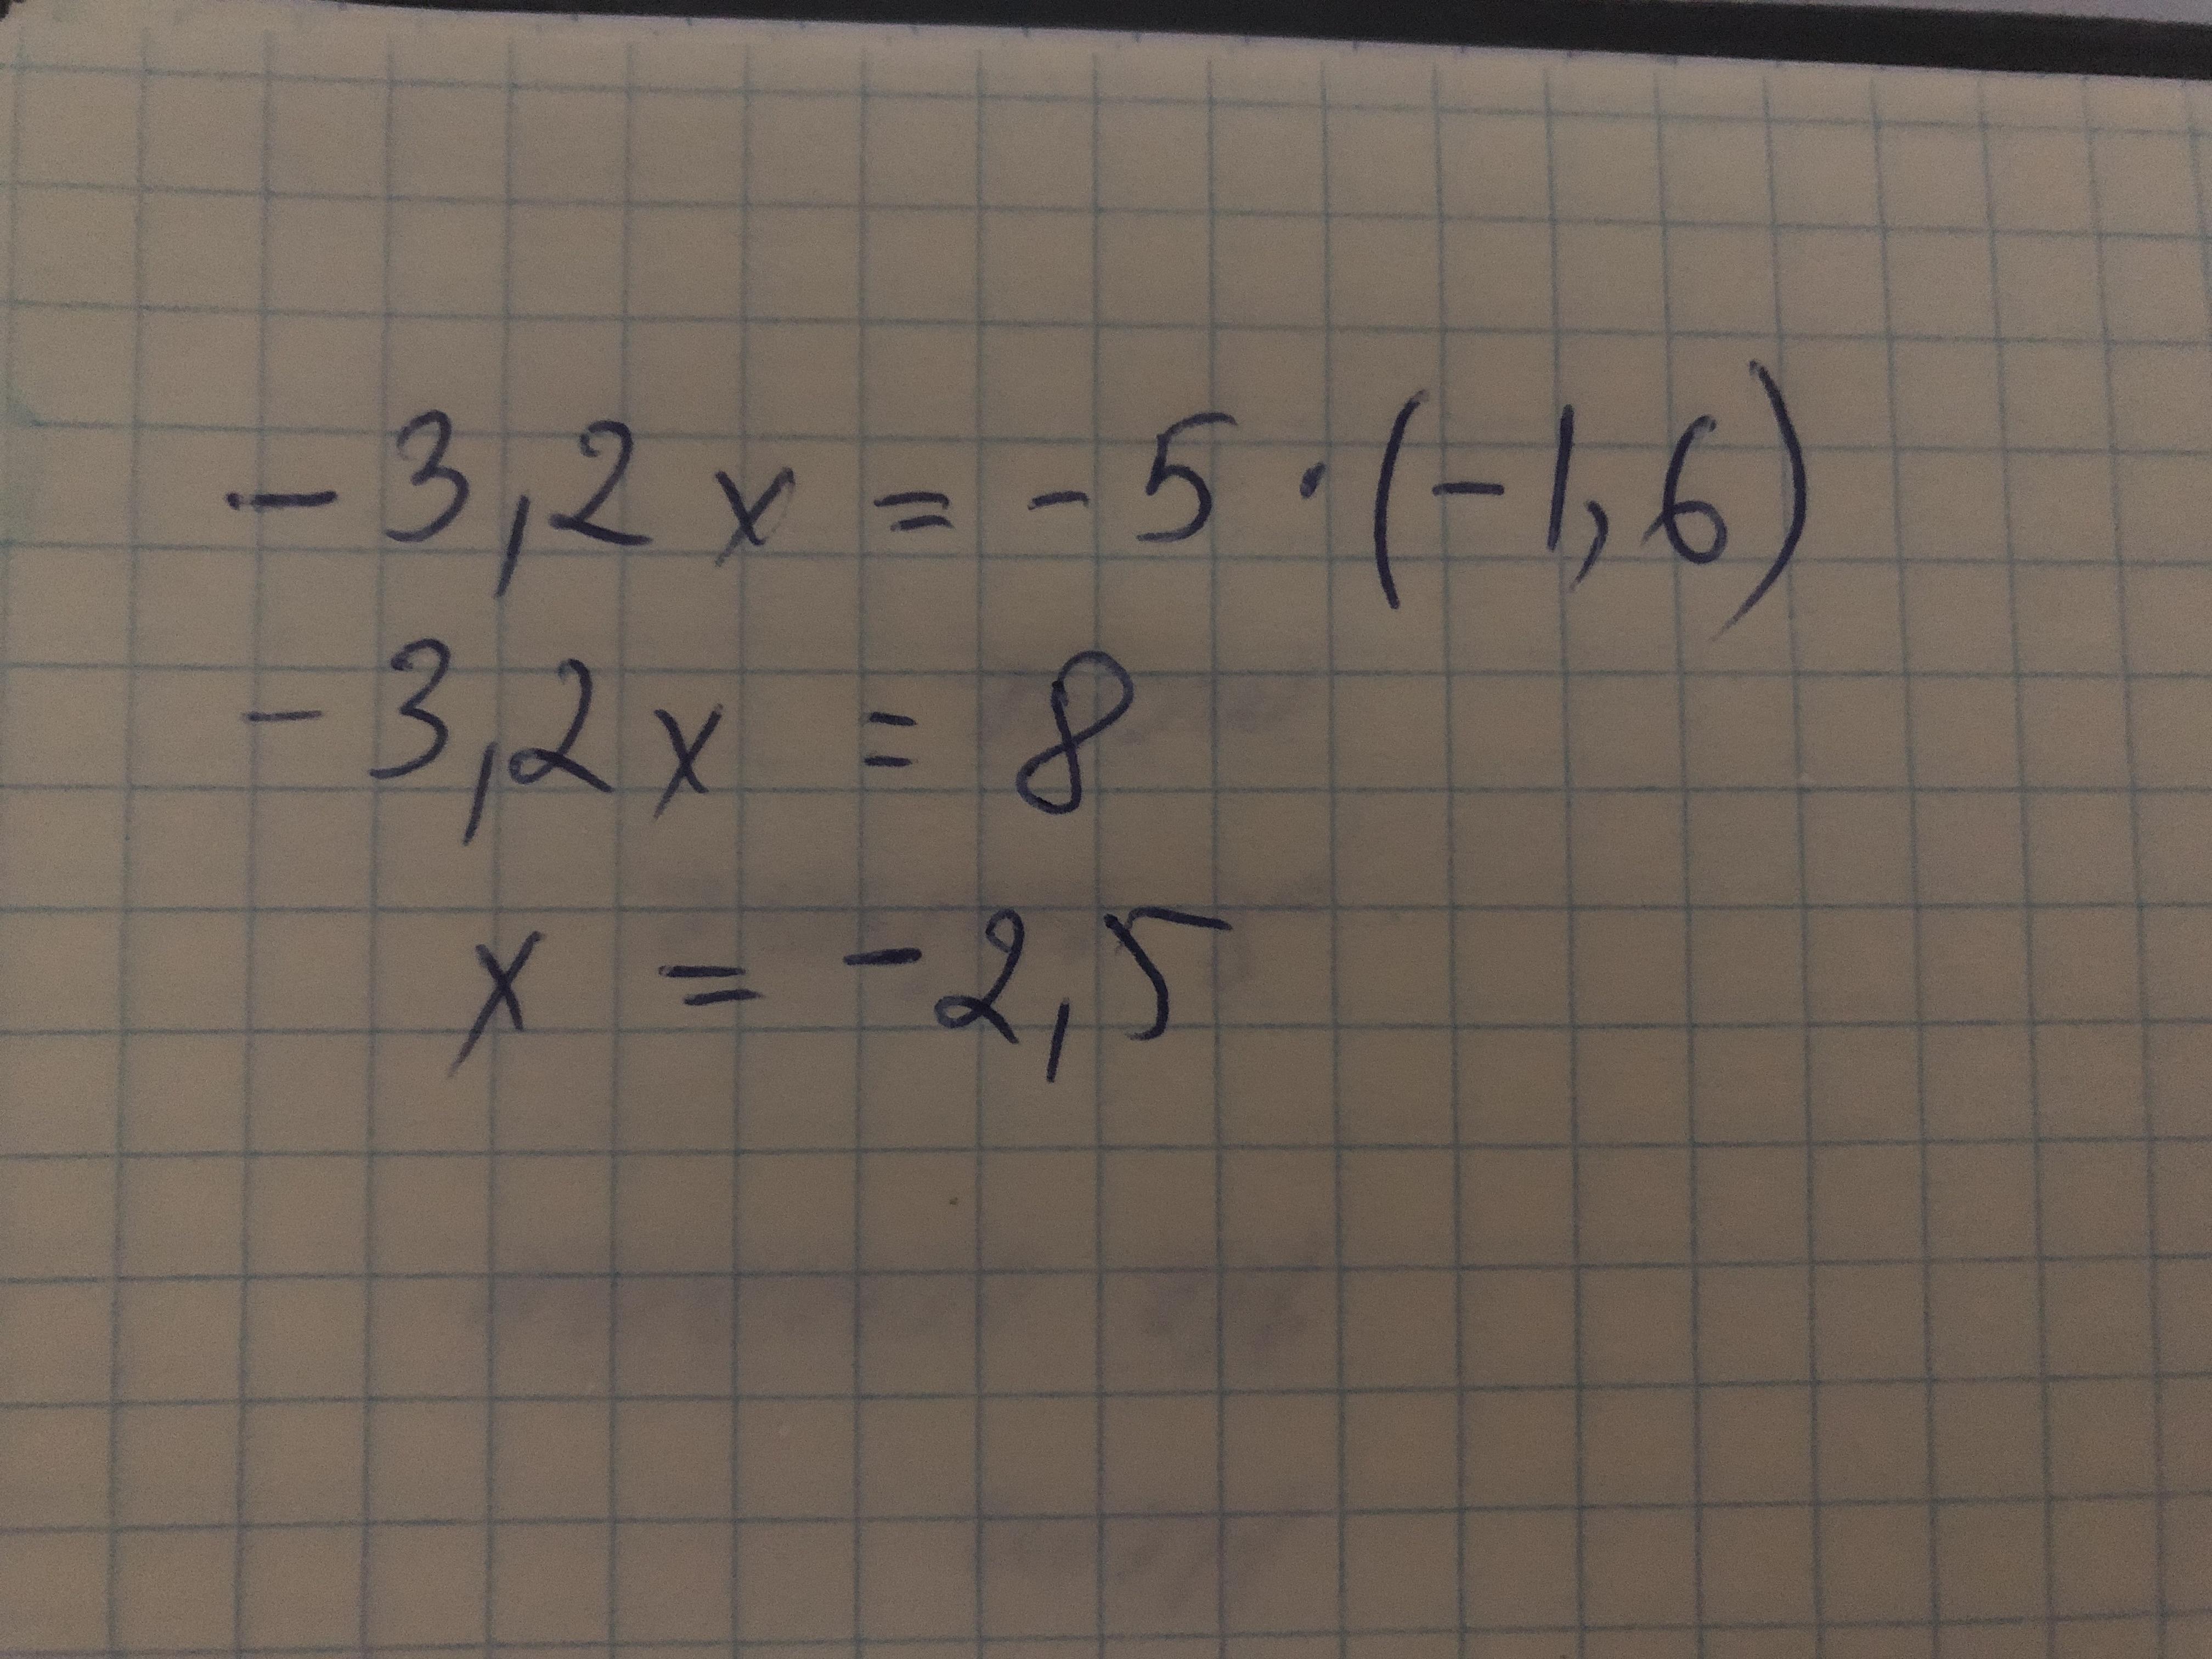 -3,2x = -5·(-1,6)
-3,2x = 8
x = -2,5